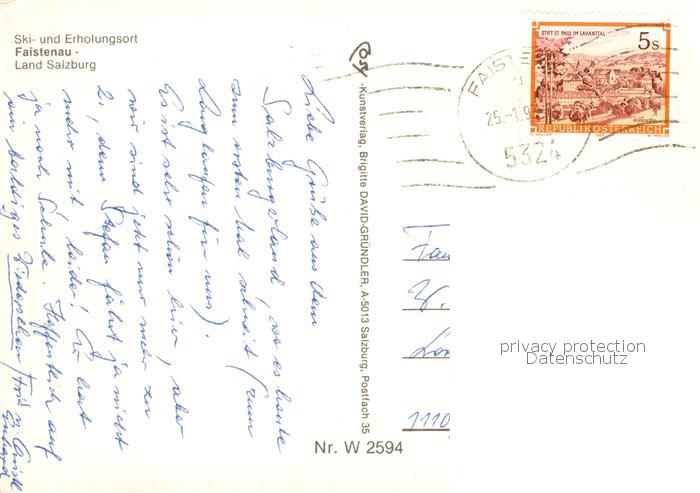 Ski- und Erholungsort
Faistenau -
Land Salzburg
STIFT ST. PAUL IM LAVANTTAL
5s
REPUBLIK ÖSTERREICH
FAIST
25.-1.9
5324
Liebe Grüße aus dem
Salzburgerland, wo es heute
zum ersten Mal schneit (zum
Langlaufen für uns).
Es ist sehr schön hier, aber
wir sind jetzt nur mehr zu
2, denn Stefan fährt ja nicht
mehr mit, leider! Er hat
ja noch Schule. Hoffentlich auf
ein baldiges Wiedersehen
-Kunstverlag, Brigitte DAVID-GRÜNDLER, A-5013 Salzburg, Postfach 35
Fam
1110
privacy protection
Datenschutz
Nr. W 2594